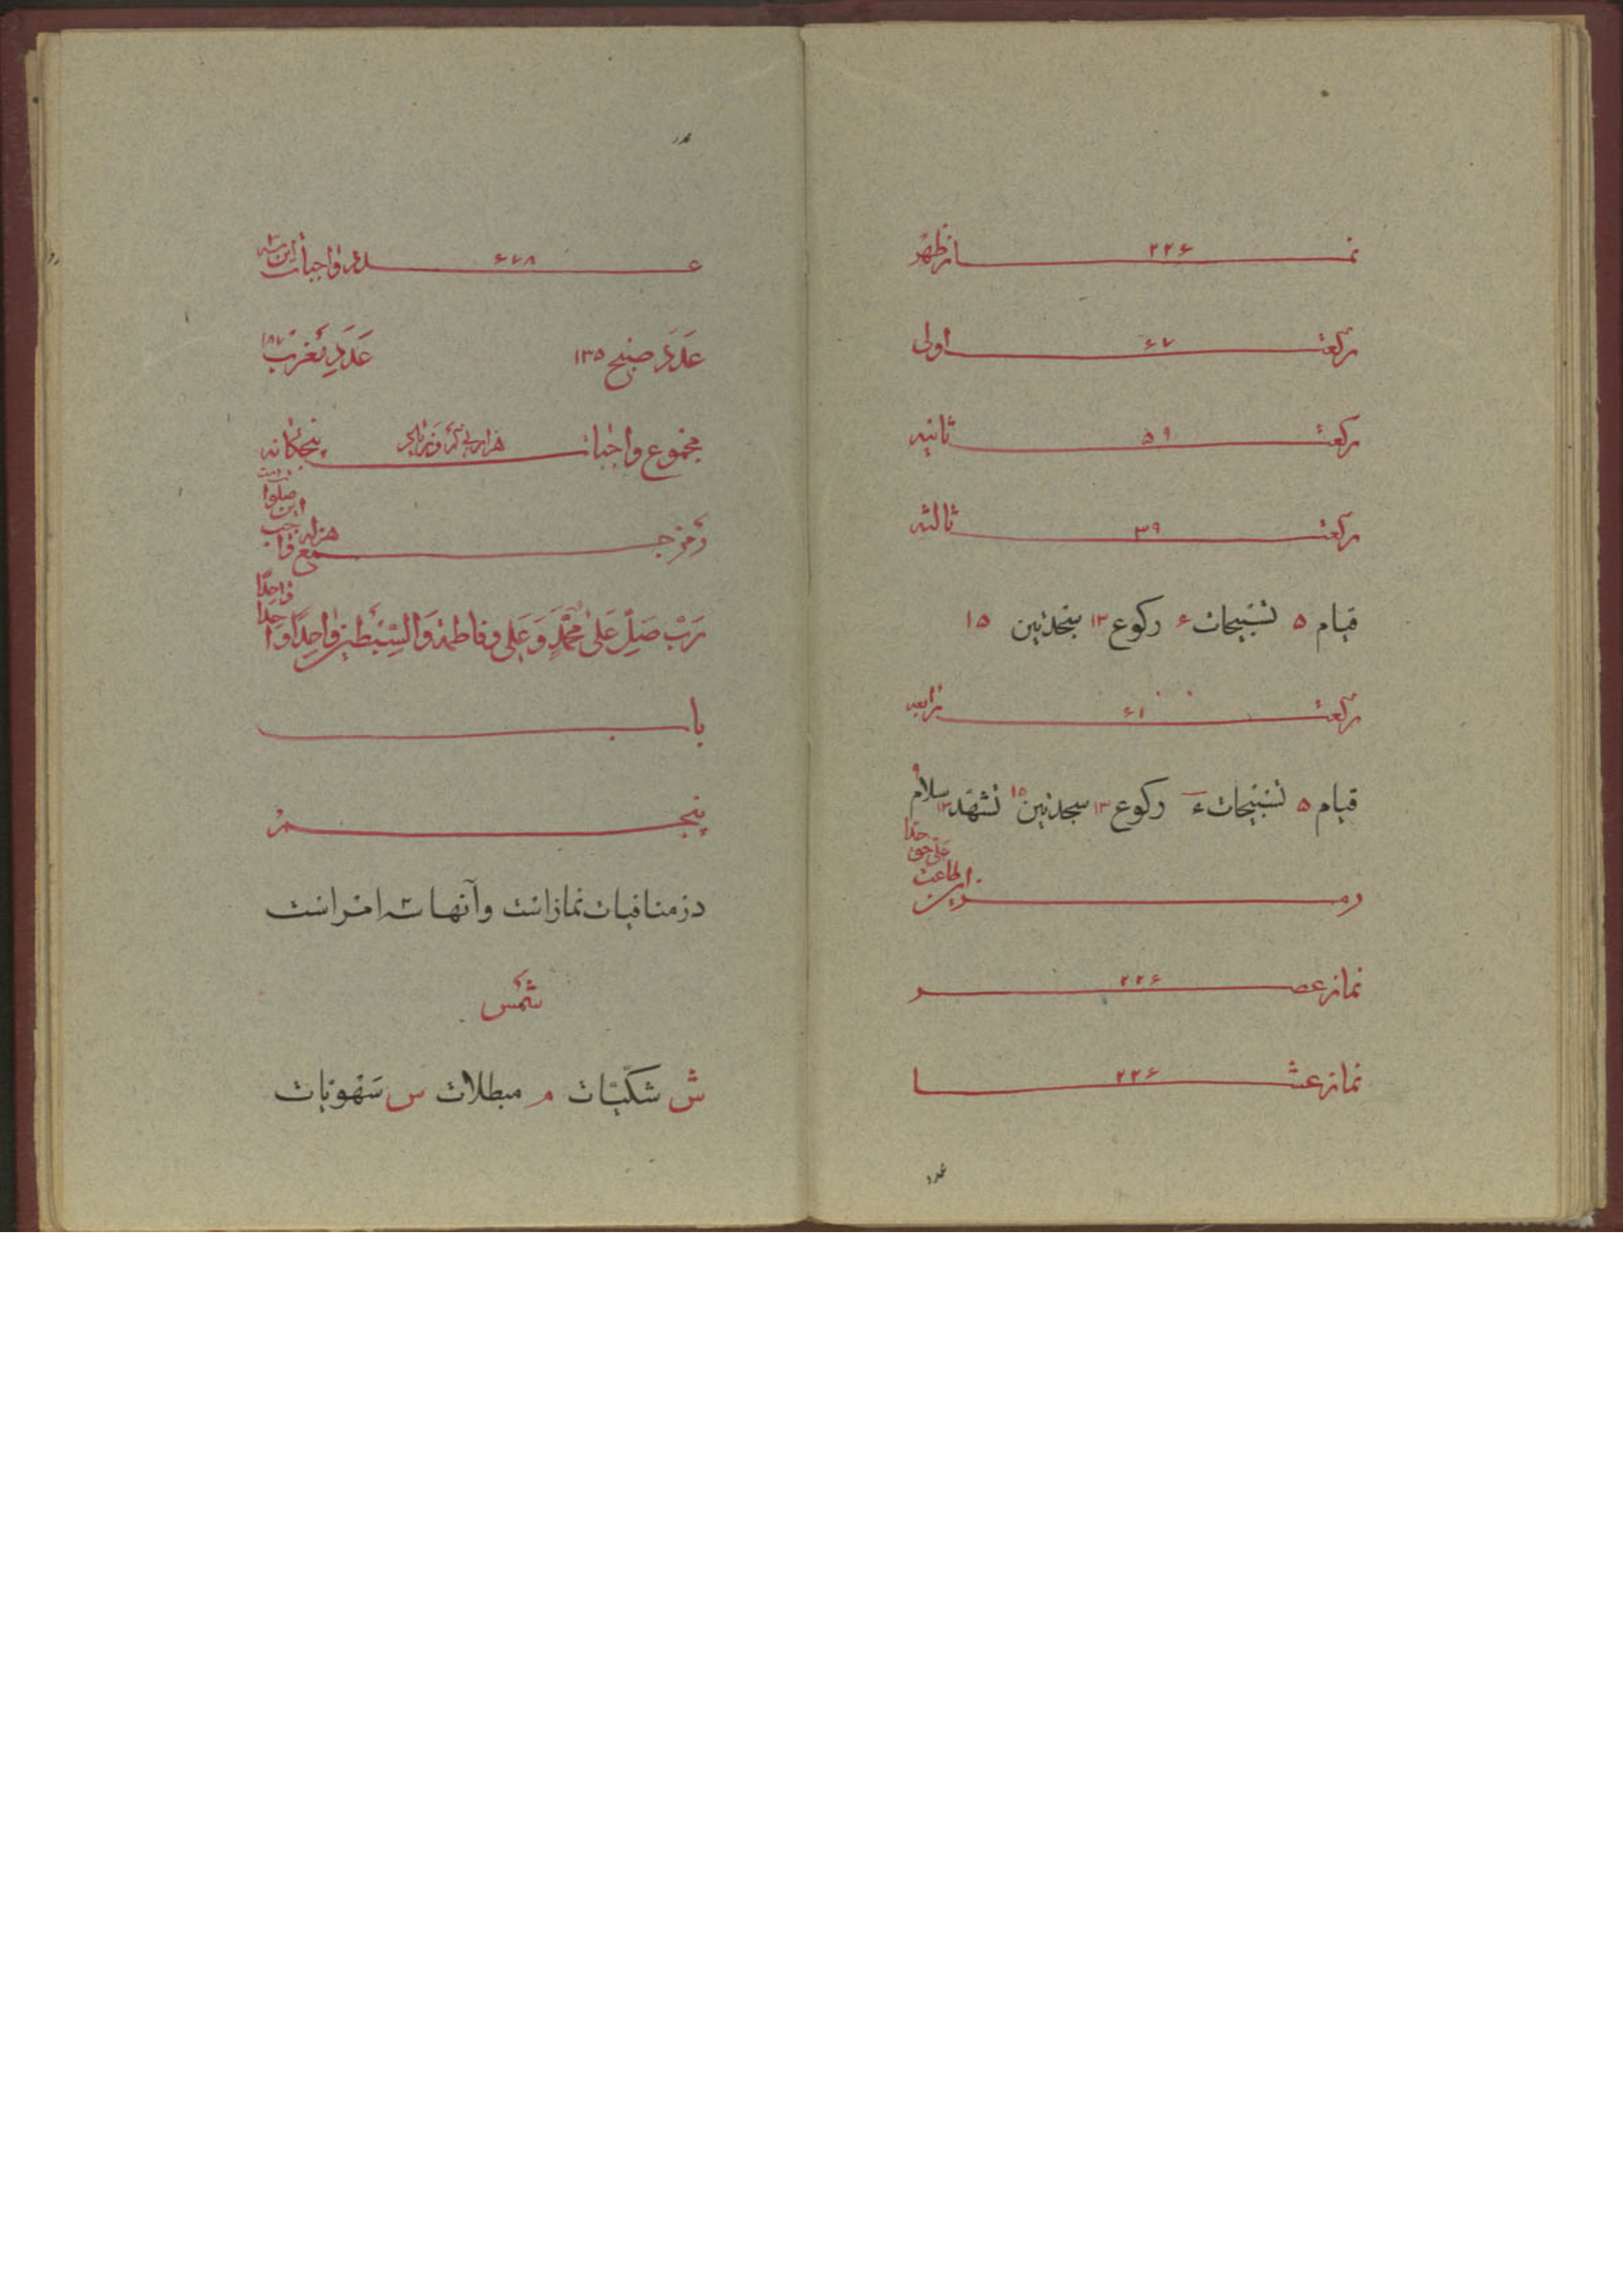 نماز ظهر ۲۲۶
رکعت اولی ۶۷
رکعت ثانیه ۵۹
رکعت ثالثه ۳۹
قیام ۵ تسبیحات ۶ رکوع ۱۳ سجدتین ۱۵
رکعت رابعه ۶۱
قیام ۵ تسبیحات ۶ رکوع ۱۳ سجدتین ۱۵ تشهد ۱۳ سلام ۹
نماز عصر ۲۲۶
نماز عشا ۲۲۶
عدد واجبات این سه ۶۷۸
عدد صبح ۱۳۵ عدد مغرب ۱۸۷
مجموع واجبات پنجگانه هزار
رمز جمع
رب صل علی محمد و علی و فاطمة والسبطین واحدا واحدا
باب
پنجم
در منافیات نماز است و آنها سه امر است
شمس
ش شکیات م مبطلات س سهویات